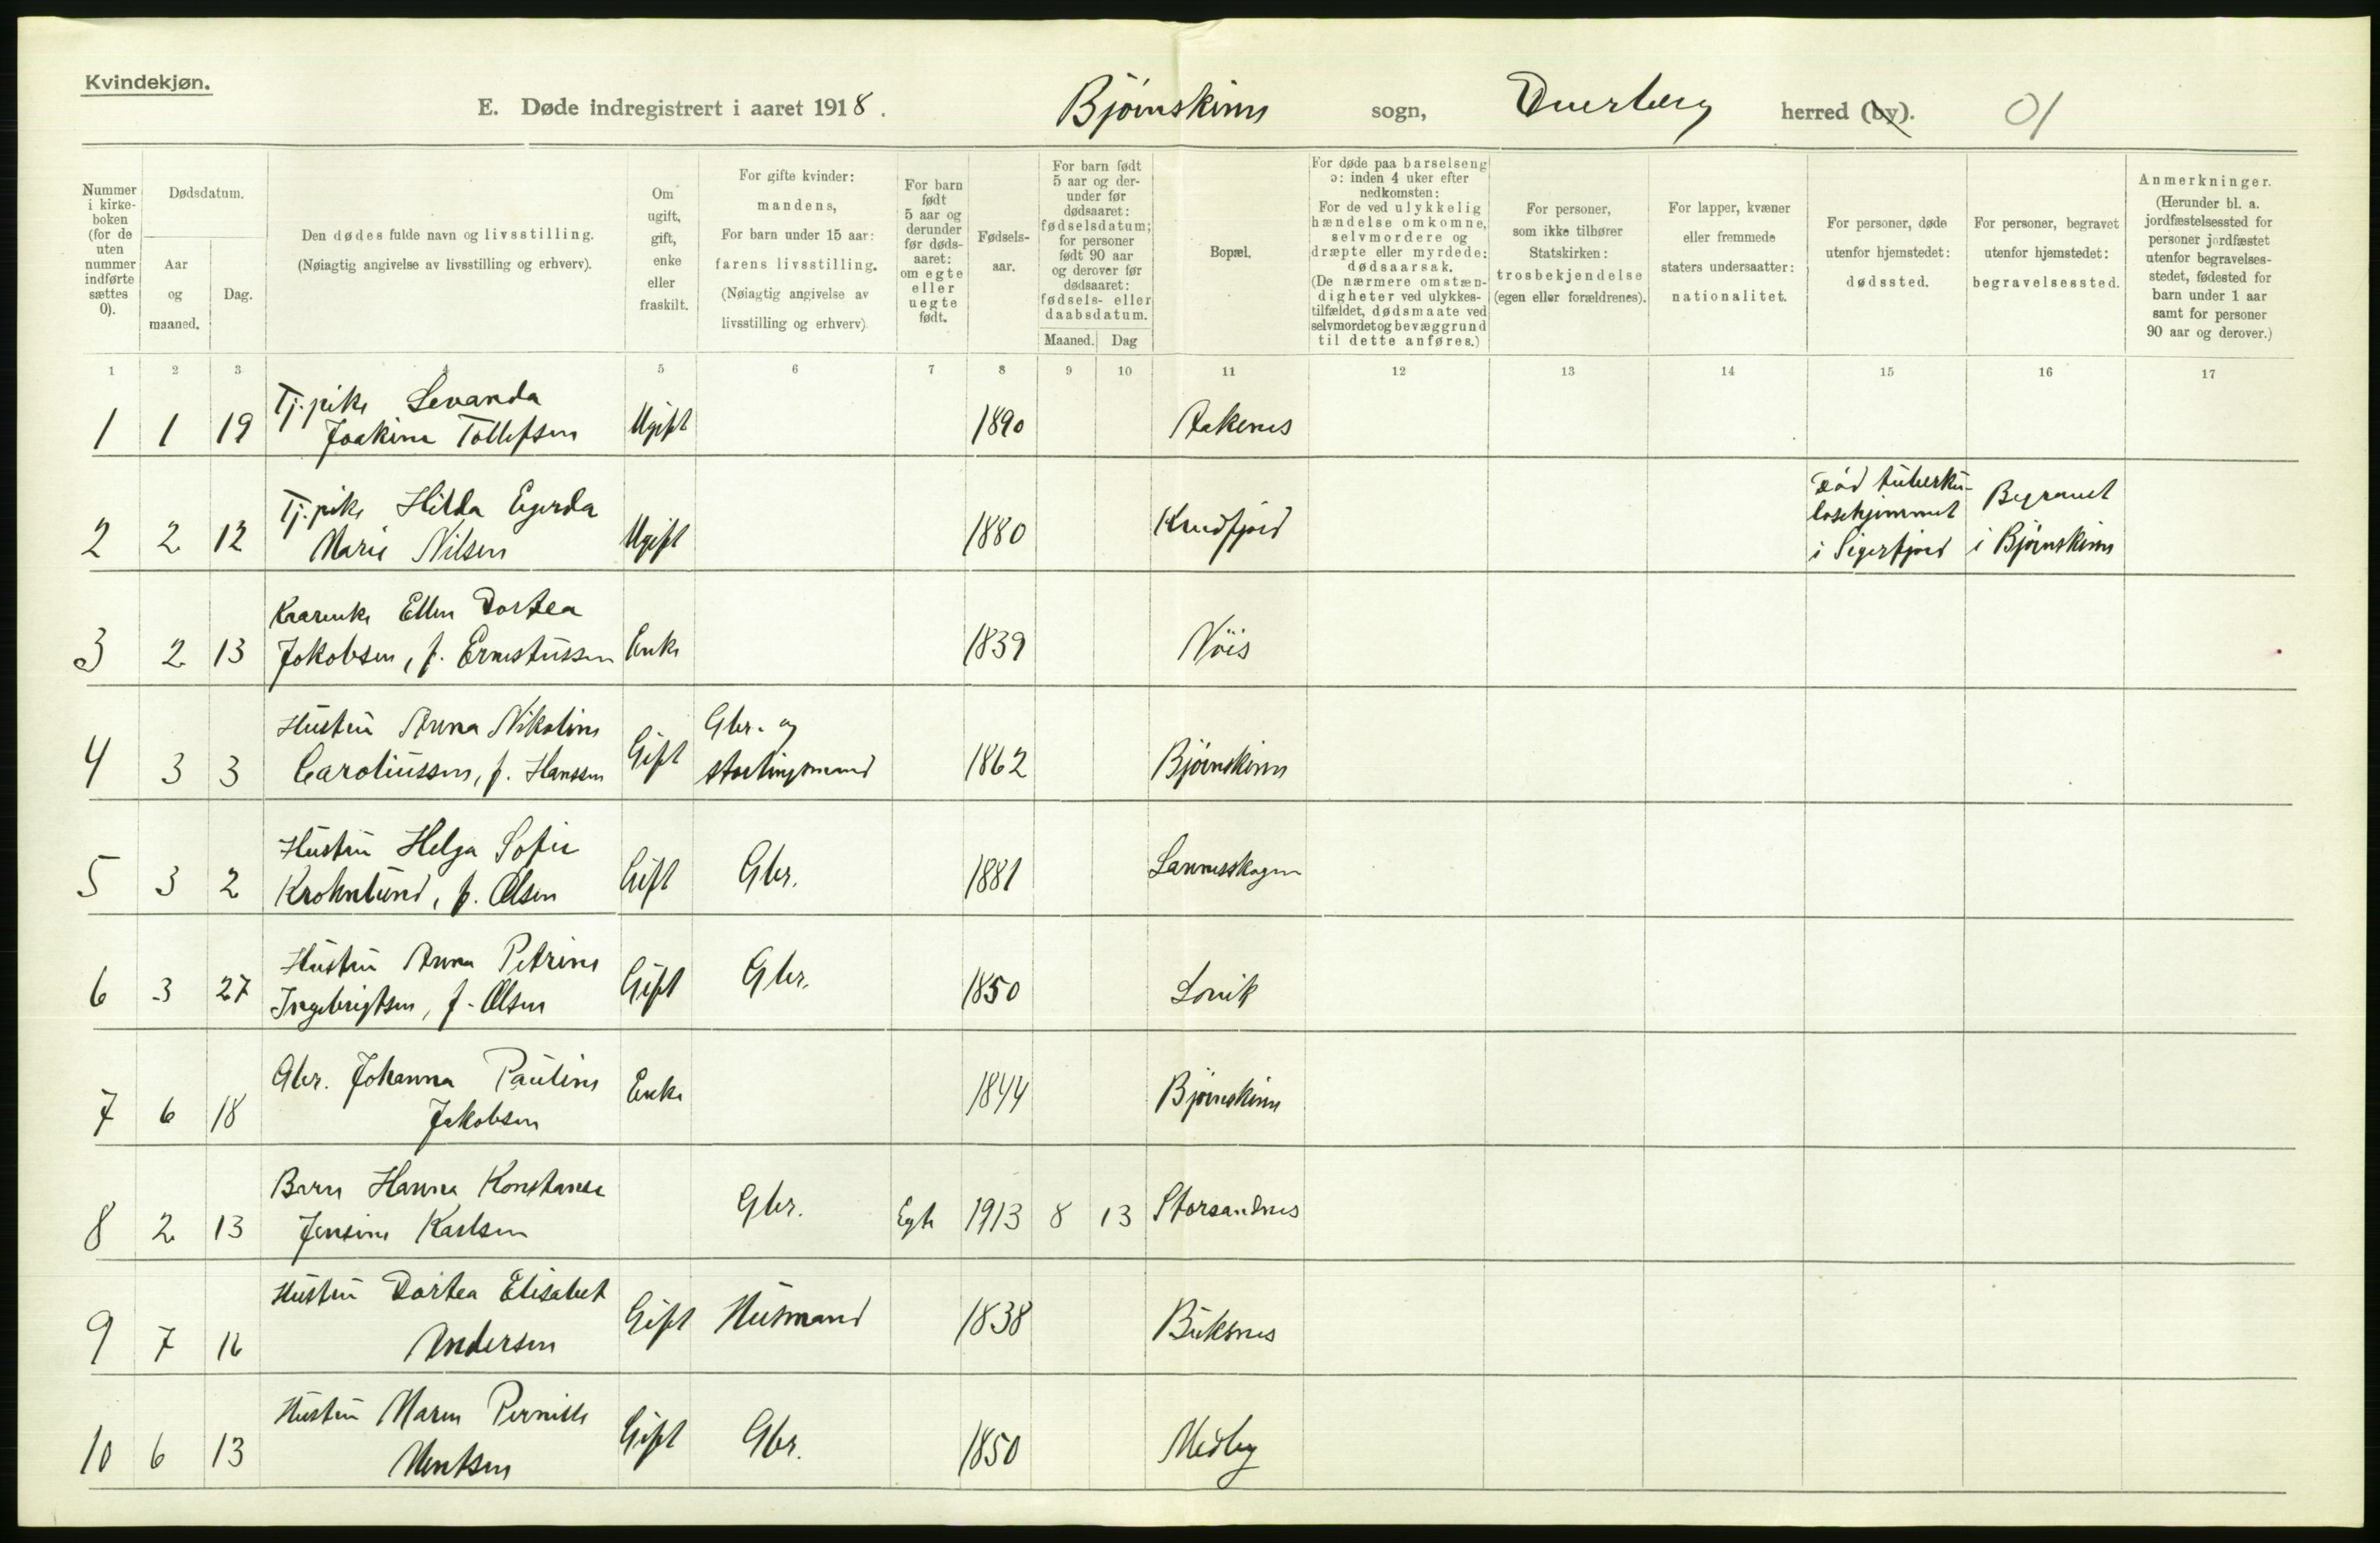 Kvindekjøn.
E. Døde indregistrert i aaret 1918. Bjørnskinn sogn, Dverberg herred (by). 01
Nummer i kirke-boken (for de uten nummer indførte sættes 0).
Dødsdatum.
Aar og maaned.
Dag.
Den dødes fulde navn og livsstilling.
(Nøiagtig angivelse av livsstilling og erhverv).
Om ugift, gift, enke eller fraskilt.
For gifte kvinder: mandens,
For barn under 15 aar: farens livsstilling.
(Nøiagtig angivelse av livsstilling og erhverv)
For barn født 5 aar og derunder før døds-aaret: om egte eller uegte født.
Fødsels-aar.
For barn født 5 aar og der-under før dødsaaret: fødselsdatum; for personer født 90 aar og derover før dødsaaret: fødsels- eller daabsdatum.
Maaned. Dag
Bopæl.
For døde paa barselseng ɔ: inden 4 uker efter nedkomsten:
For de ved ulykkelig hændelse omkomne, selvmordere og dræpte eller myrdede: dødsaarsak.
(De nærmere omstæn-digheter ved ulykkes-tilfældet, dødsmaate ved selvmordet og bevæggrund til dette anføres.)
For personer, som ikke tilhører Statskirken: trosbekjendelse (egen eller forældrenes).
For lapper, kvæner eller fremmede staters undersaatter: nationalitet.
For personer, døde utenfor hjemstedet: dødssted.
For personer, begravet utenfor hjemstedet: begravelsessted.
Anmerkninger.
(Herunder bl. a. jordfæstelsessted for personer jordfæstet utenfor begravelses-stedet, fødested for barn under 1 aar samt for personer 90 aar og derover.)
1 2 3 4 5 6 7 8 9 10 11 12 13 14 15 16 17
Tj.pike Levanda
1 1 19 Joakine Tollefsen Ugift 1890 Aakenes
Tj.pike Hilda Egerda Død tuberku- Begravet
2 2 12 Marie Nilsen Ugift 1880 Knudfjord losehjemmet
i Sigerfjord i Bjørnskinn
Kaarenke Ellen Dortea
3 2 13 Jokobsen, f. Ernestussen Enke 1839 Nöis
Hustru Anna Nikoline Gbr. og
4 3 3 Caroliussen, f. Hanssen Gift stortingsmand 1862 Bjørnskinn
Hustru Helga Sofie
5 3 2 Krohnlund, f. Olsen Gift Gbr. 1881 Lannesskogen
Hustru Anna Petrine
6 3 27 Ingebrigtsen, f. Olsen Gift Gbr. 1850 Lovik
Gbr. Johanna Pauline
7 6 18 Jakobsen Enke 1844 Bjørnskinn
Barn Hanna Konstanse
8 2 13 Jensine Karlsen Gbr. Egte 1913 8 13 Storsandnes
Hustru Dortea Elisabet
9 7 16 Andersen Gift Husmand 1838 Buksnes
Hustru Maren Pernille
10 6 13 Mentsen Gift Gbr. 1850 Medby